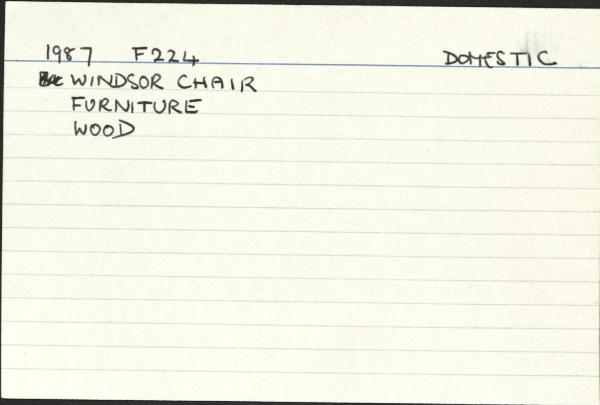 1987 F224 DOMESTIC
WINDSOR CHAIR
FURNITURE
WOOD